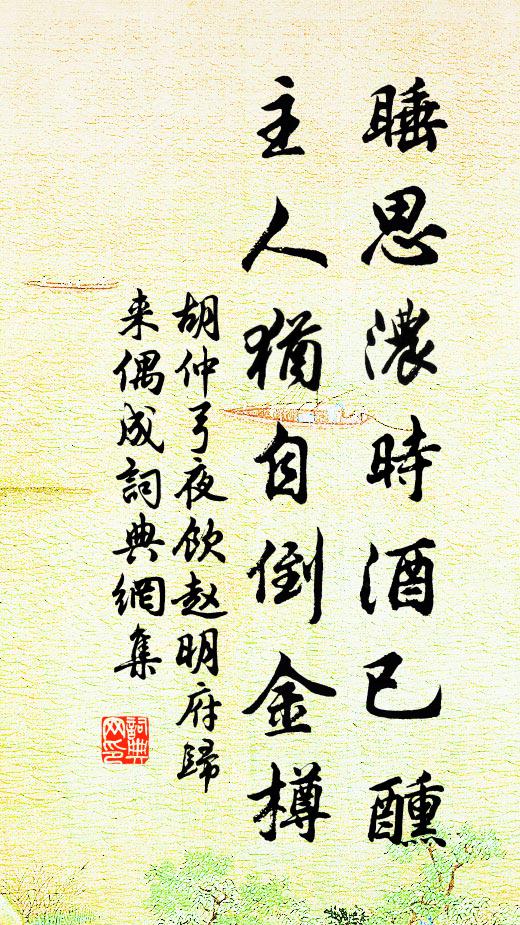 睡思濃時酒已醺
主人猶自倒金樽
胡仲弓夜飲赵明府歸
来偶成詞典網集
詞典
网印